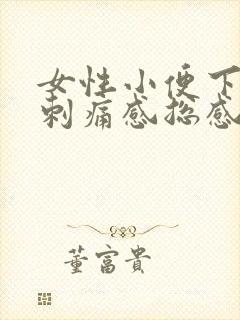 女性小便下
刺痛感总感
董富贵